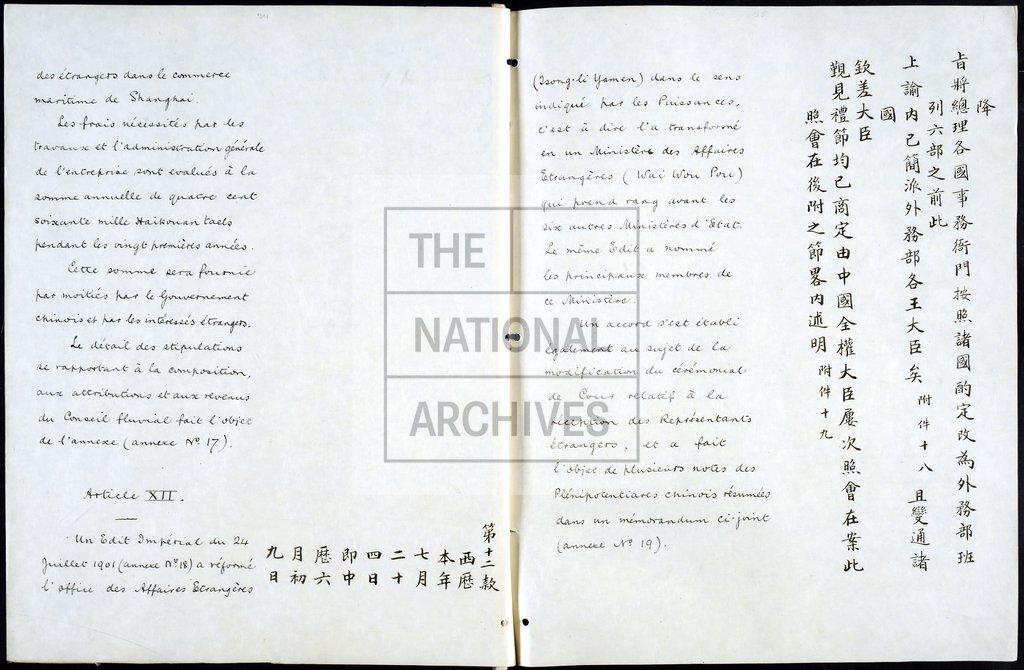 des étrangers dans le commerce
maritime de Shanghai.
Les frais nécessités par les
travaux et l'administration générale
de l'entreprise sont evalués à la
somme annuelle de quatre cent
soixante mille Haikouan taels
pendant les vingt premières années.
Cette somme sera fournie
par moitiés par le Gouvernement
chinois et par les intéressés étrangers.
Le détail des stipulations
se rapportant à la composition,
aux attributions et aux revenus
du Conseil fluvial fait l'objet
de l'annexe (annexe No 17).
Article XII.
Un Edit Impérial du 24
Juillet 1901 (annexe No 18) a réformé
l'Office des Affaires Etrangères
第十二款
西曆
本年
七月
二十
四日
即中
曆六
月初
九日
(Tsong-li Yamen) dans le sens
indiqué par les Puissances,
c'est à dire l'a transformé
en un Ministère des Affaires
Etrangères (Wai Wou Pou)
qui prend rang avant les
six autres Ministères d'Etat.
Le même Edit a nommé
les principaux membres de
ce Ministère.
Un accord s'est établi
également au sujet de la
modification du cérémonial
de Cour relatif à la
réception des Représentants
étrangers, et a fait
l'objet de plusieurs notes des
Plénipotentiaires chinois résumées
dans un mémorandum ci-joint
(annexe No 19).
降
旨將總理各國事務衙門按照諸國酌定改為外務部班
列六部之前此
上諭內已簡派外務部各王大臣矣附件十八且變通諸
國
欽差大臣
覲見禮節均已商定由中國全權大臣屢次照會在案此
照會在後附之節畧內述明附件十九
THE
NATIONAL
ARCHIVES